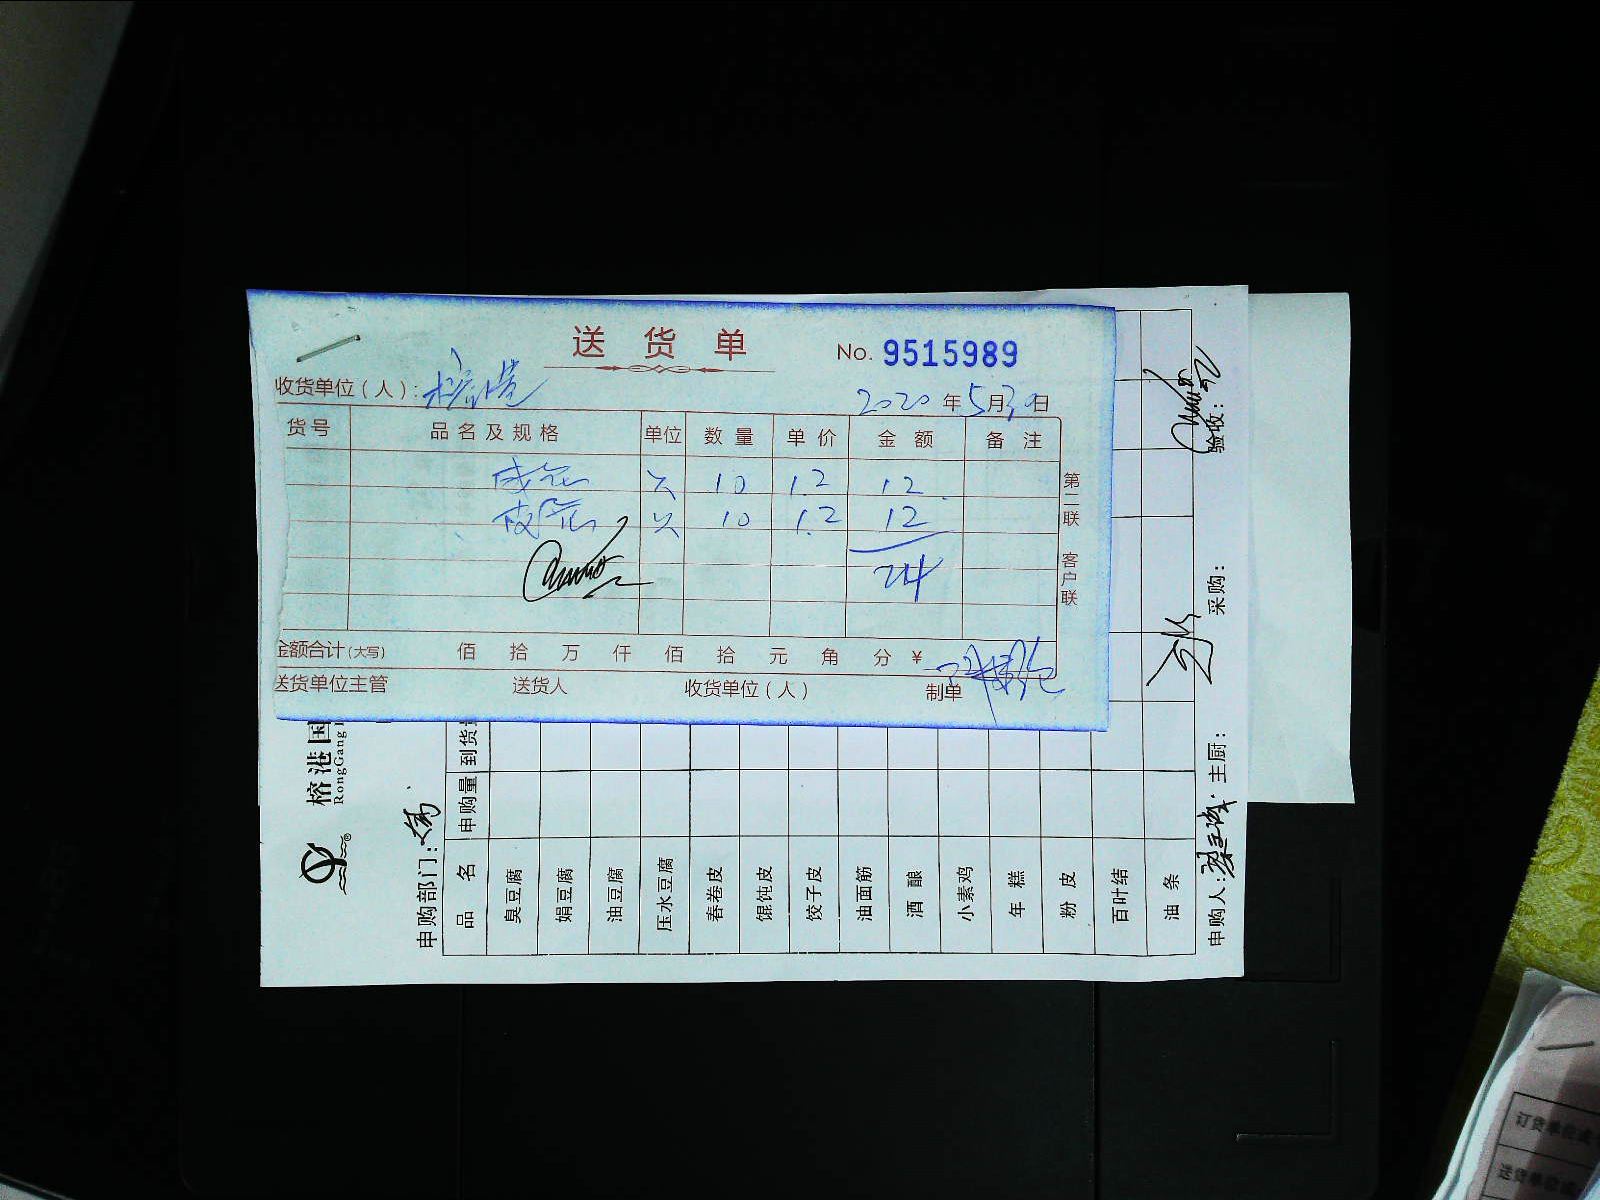 送货单
No. 9515989
收货单位（人）：榕港
2020 年 5 月 30 日
货号 品名及规格 单位 数量 单价 金额 备注
只 10 1.2 12
皮蛋 只 10 1.2 12
24
第二联 客户联
金额合计(大写) 佰 拾 万 仟 佰 拾 元 角 分 ¥
送货单位主管 送货人 收货单位（人） 制单
榕港国
RongGang
®
申购部门：
品名 申购量 到货
臭豆腐
娟豆腐
油豆腐
压水豆腐
春卷皮
馄饨皮
饺子皮
油面筋
酒酿
小素鸡
年糕
粉皮
百叶结
油条
申购人： 主厨： 采购： 验收：
订货单位
送货单位